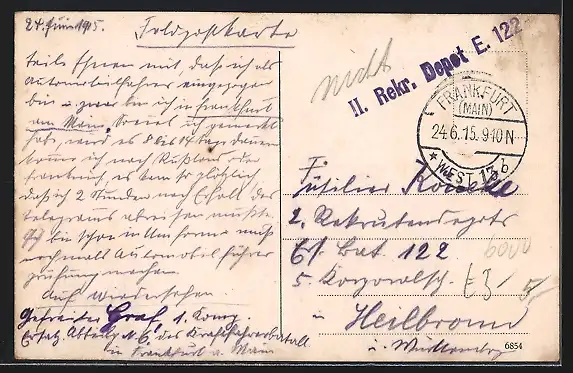 24. Juni 1915.
Feldpostkarte
teile Ihnen mit, daß ich als
Automobilfahrer eingezogen
bin u. zwar bin ich in Frankfurt
am Main. Soviel ich gemerkt
habe, wird es 8 bis 14 Tage dauern
komme ich nach Rußland oder
Frankreich es kam so plötzlich
daß ich 2 Stunden nach Erhalt des
Telegrams abreisen mußte.
Ich bin schon in Uniform muß
nochmals Automobilführer
prüfung machen.
Auf Wiedersehen
Gefreiter Graf, 1. Komp.
Ersatz Abteilg. N. 6 des Kraftfahrerbatall
in Frankfurt a. Main
nicht
II. Rekr. Depot E. 122
FRANKFURT
(MAIN)
24.6.15. 9-10 N
* WEST 13 b
Füsilier
2. Rekrutendepot
Bat. 122
5. Korporalsch.
Heilbronn
Württemberg
6854